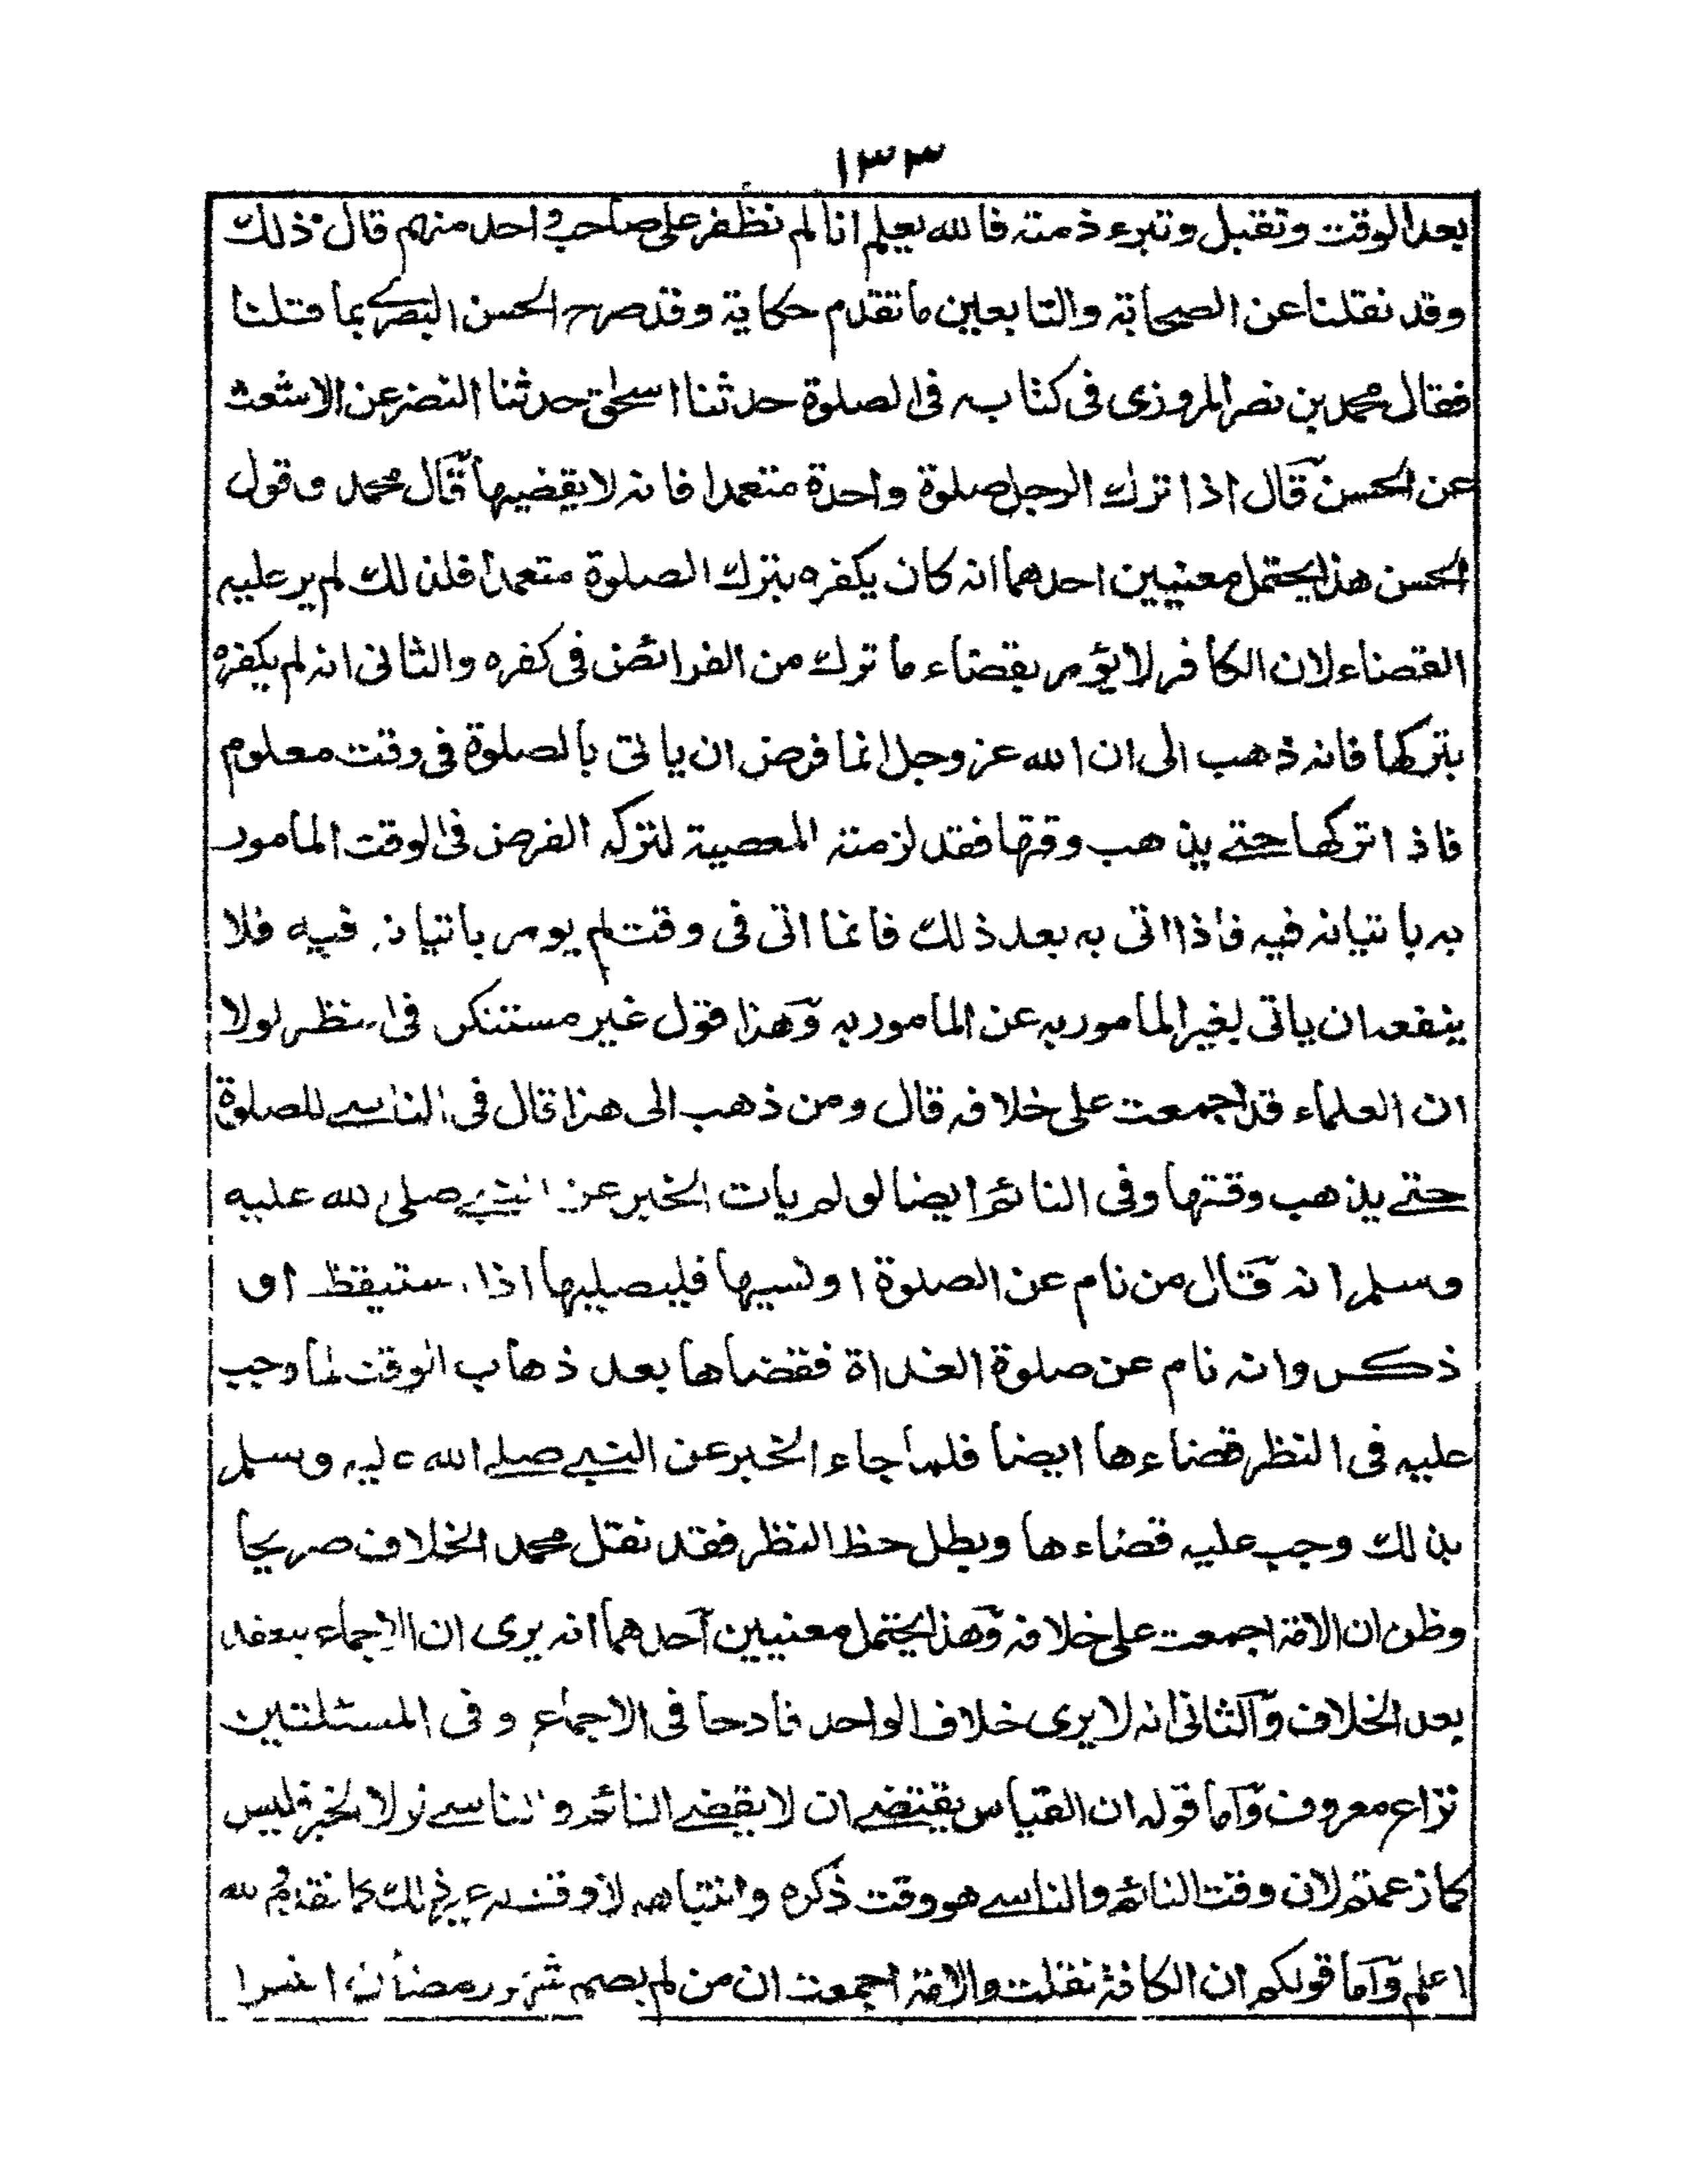 ١٣٣
بعد الوقت وتقبل وتبرء ذمته فالله يعلم انا لم نظفر على صاحب واحد منهم قال ذلك
وقد نقلنا عن الصحابة والتابعين ما تقدم حكاية وقد صرح الحسن البصري بما قلنا
فقال محمد بن نصر المروزى فى كتابه فى الصلوة حدثنا اسحٰق حدثنا النضر عن الاشعث
عن الحسن قال اذا ترك الرجل صلوة واحدة متعمدا فانه لا يقضيها قال محمد وقول
الحسن هذا يحتمل معنيين احدهما انه كان يكفره بترك الصلوة متعمدا فلذلك لم ير عليه
القضاء لان الكافر لا يؤمر بقضاء ما ترك من الفرائض فى كفره والثانى انه لم يكفره
بتركها فانه ذهب الى ان الله عز وجل انما فرض ان ياتى بالصلوة فى وقت معلوم
فاذا تركها حتى يذهب وقتها فقد لزمته المعصية لتركه الفرض فى الوقت المامور
به باتيانه فيه فاذا اتى به بعد ذلك فانما اتى فى وقت لم يومر باتيانه فيه فلا
ينفعه ان ياتى بغير المامور به عن المامور به وهذا قول غير مستنكر فى النظر لولا
ان العلماء قد اجمعت على خلافه قال ومن ذهب الى هذا قال فى الناسى للصلوة
حتى يذهب وقتها وفى النائم ايضا لو لم يات الخبر عن النبى صلى الله عليه
وسلم انه قال من نام عن الصلوة او نسيها فليصليها اذا استيقظ او
ذكر وانه نام عن صلوة الغداة فقضاها بعد ذهاب الوقت لما وجب
عليه فى النظر قضاءها ايضا فلما جاء الخبر عن النبى صلى الله عليه وسلم
بذلك وجب عليه قضاءها وبطل حظ النظر فقد نقل محمد الخلاف صريحا
وظن ان الامة اجمعت على خلافه وهذا يحتمل معنيين احدهما انه يرى ان الاجماع ينعقد
بعد الخلاف والثانى انه لا يرى خلاف الواحد قادحا فى الاجماع وفى المسئلتين
نزاع معروف واما قوله ان القياس يقتضى ان لا يقضى النائم والناسى لولا الخبر فليس
كما زعمتم لان وقت النائم والناسى هو وقت ذكره وانتباهه لا وقت له غير ذلك كما تقدم والله
اعلم واما قولكم ان الكافة نقلت والامة اجمعت ان من لم يصم شهر رمضان اشرا